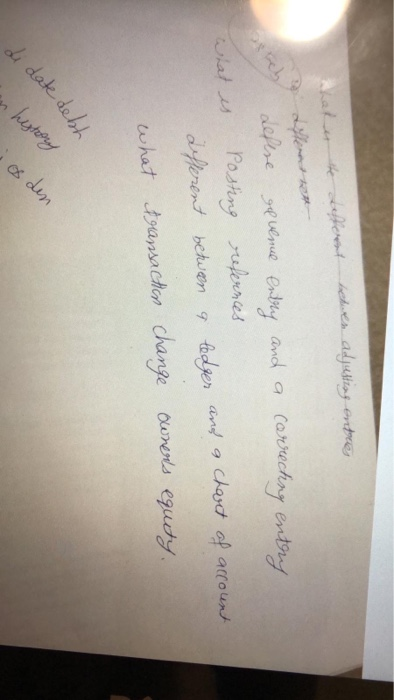 What is the different between adjusting entries
different
define reverse entry and a correcting entry
what is Posting refernces
different between a ledger and a chart of account
what transaction change owners equity.
date debt